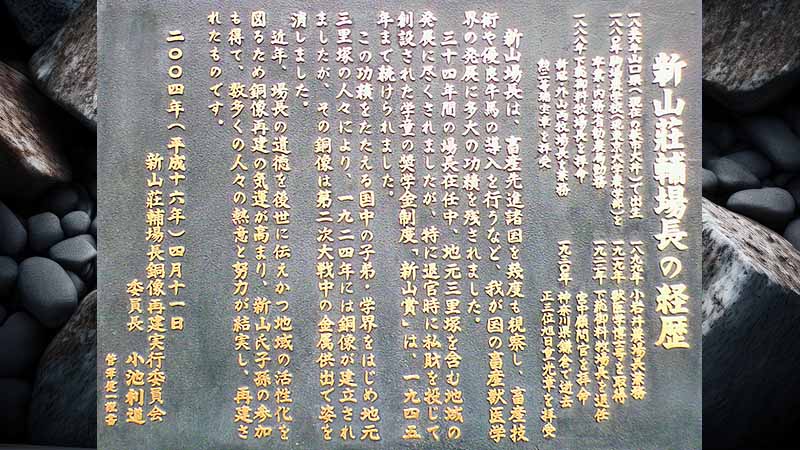 新山荘輔場長の経歴
一八五六年山口県(現在の萩市大井)で出生
一八九九年 小岩井農場長兼務
一九一九年 獣医学博士号を取得
一九二二年 下総御料牧場長を退任
宮中顧問官を拝命
一八八八年下総御料牧場長を拝命
一九三〇年 神奈川県鎌倉で逝去
新冠・外山両牧場長を兼務
正三位旭日重光章を拝受
勲三等瑞宝章を拝受
新山場長は、畜産先進諸国を幾度も視察し、畜産技
術や優良牛馬の導入を行うなど、我が国の畜産獣医学
界の発展に多大の功績を残されました。
三十四年間の場長在任中、地元三里塚を含む地域の
発展に尽くされましたが、特に退官時に私財を投じて
創設された学童の奨学金制度「新山賞」は、一九四五
年まで続けられました。
この功績をたたえる国中の子弟・学界をはじめ地元
三里塚の人々により、一九二四年には銅像が建立され
ましたが、その銅像は第二次大戦中の金属供出で姿を
消しました。
近年、場長の遺徳を後世に伝えかつ地域の活性化を
図るため銅像再建の気運が高まり、新山氏子孫の参加
も得て、数多くの人々の熱意と努力が結実し、再建さ
れたものです。
二〇〇四年(平成十六年)四月十一日
新山荘輔場長銅像再建実行委員会
委員長 小池利道